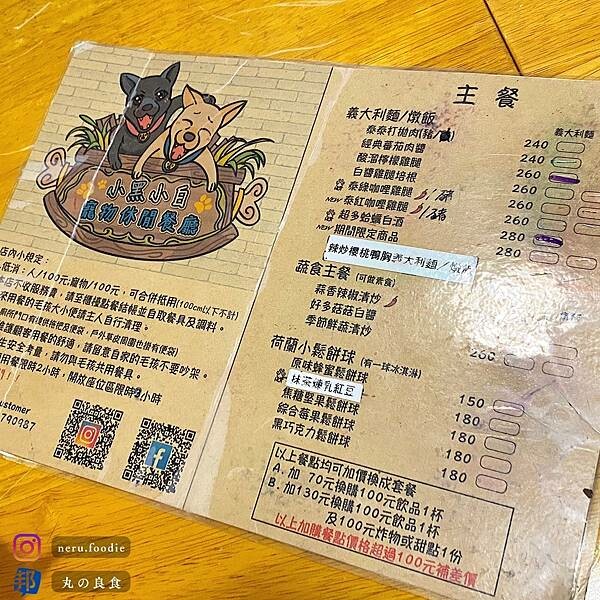 小黑小白
寵物休閒餐廳
店內小規定：
低消：人/100元;寵物/100元，可合併抵用(100cm以下不計)
本店不收服務費，請至櫃檯點餐結帳並自取餐具及調料。
用餐的毛孩大小便請主人自行清理。
維護顧客用餐的舒適，請留意自家的毛孩不要吵架。
生安全考量，請勿與毛孩共用餐具。
用餐限時2小時，開放座位區限時2小時
ustomer
790987
主餐
義大利麵/燉飯
義大利麵
泰泰打拋肉(豬/
240
經典番茄肉醬
240
酸溜檸檬雞腿
260
白醬雞腿培根
260
泰綠咖哩雞腿
260
NEW 泰紅咖哩雞腿
260
超多蛤蠣白酒
280
NEW 期間限定商品
280
辣炒櫻桃鴨胸義大利麵/燉飯
蔬食主餐 (可做素食)
蒜香辣椒清炒
好多菇菇白醬
季節鮮蔬清炒
260
荷蘭小鬆餅球 (有一球冰淇淋)
原味蜂蜜鬆餅球
150
抹茶煉乳紅豆
焦糖堅果鬆餅球
180
綜合莓果鬆餅球
180
黑巧克力鬆餅球
180
以上餐點均可加價換成套餐
A. 加 70元換購100元飲品1杯
B. 加130元換購100元飲品1杯
及100元炸物或甜點1份
以上加購餐點價格超過100元補差價
neru.foodie
邦 丸の良食